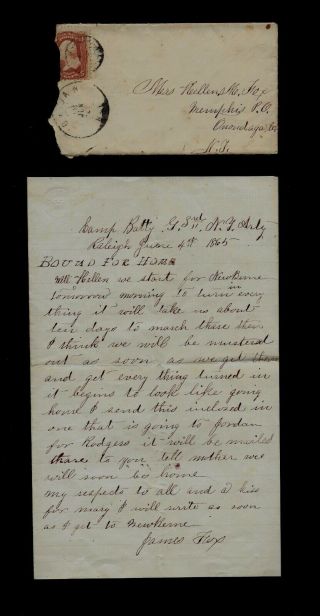 Mrs Hellen M. Fox
Memphis P.O.
Onondaga Co
N.Y.
Camp Batty G. 3rd N.Y. Arty
Raleigh June 4th 1865
BOUND FOR HOME
Hellen we start for Newberne
tomorrow morning to turn in every
thing it will take us about
ten days to march there then
I think we will be mustered
out as soon as we get there
and get every thing turned in
it begins to look like going
home I send this inclosed in
one that is going to Jordan
for Rodgers it will be mailed
thare to you tell mother we
will soon be home
my respects to all and a kiss
for mary I will write as soon
as I get to Newberne
James Fox